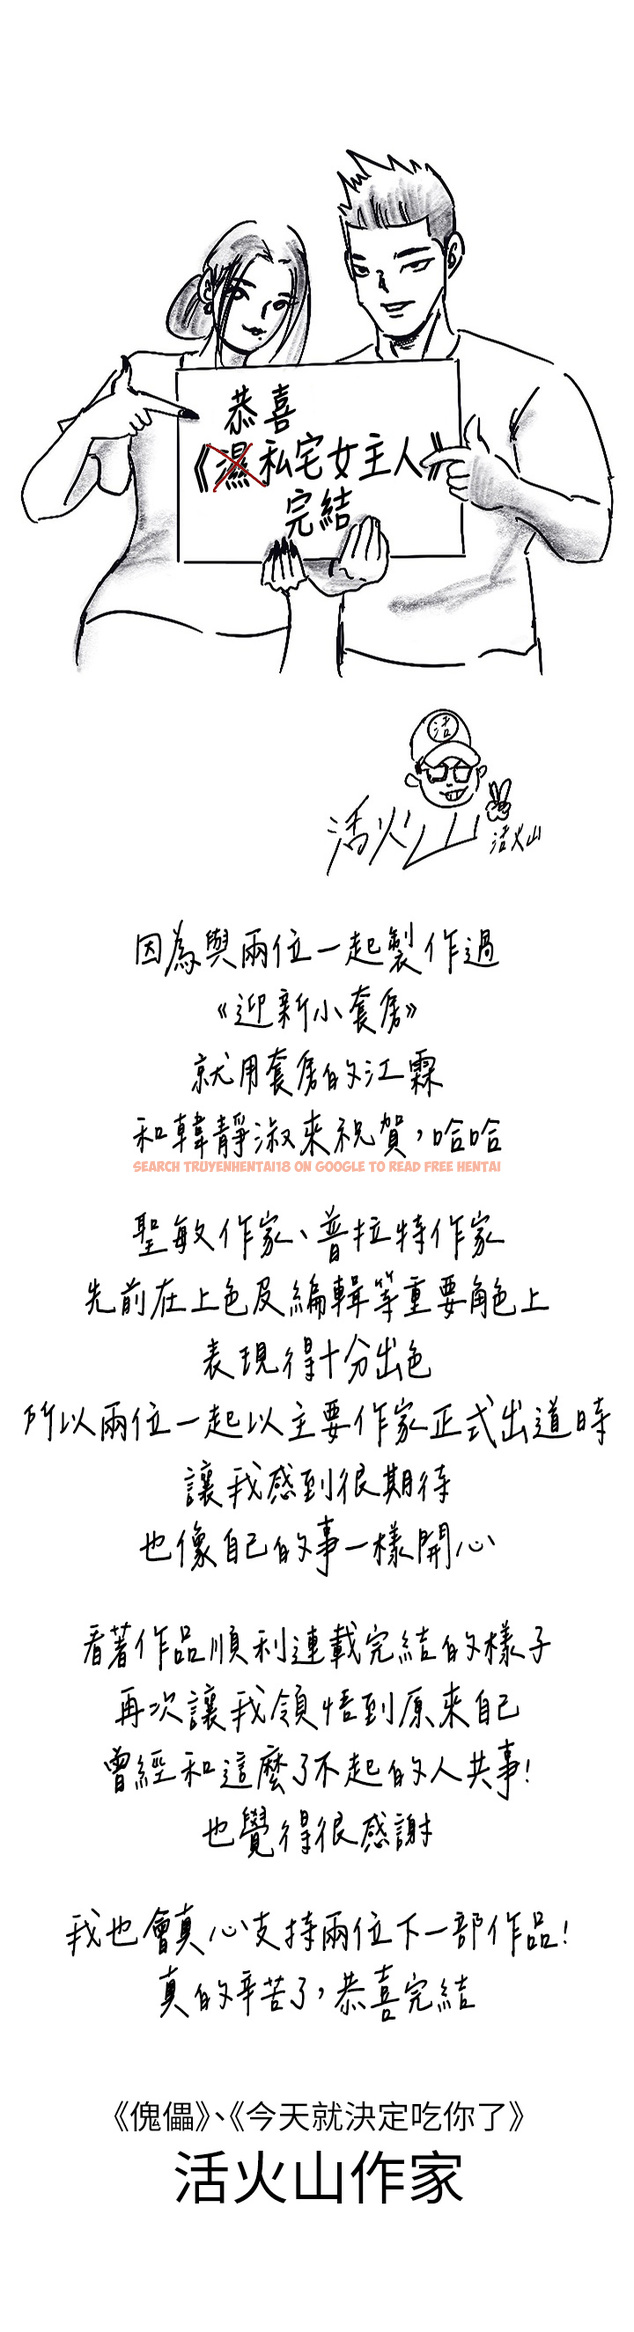 恭喜
《濕私宅女主人》
完結
活
活火山
活火山
因為與兩位一起製作過
《迎新小套房》
就用套房的江霖
和韓靜淑來祝賀，哈哈
SEARCH TRUYENHENTAI18 ON GOOGLE TO READ FREE HENTAI
聖敏作家、普拉特作家
先前在上色及編輯等重要角色上
表現得十分出色
所以兩位一起以主要作家正式出道時
讓我感到很期待
也像自己的事一樣開心
看著作品順利連載完結的樣子
再次讓我領悟到原來自己
曾經和這麼了不起的人共事!
也覺得很感謝
我也會真心支持兩位下一部作品!
真的辛苦了，恭喜完結
《傀儡》、《今天就決定吃你了》
活火山作家